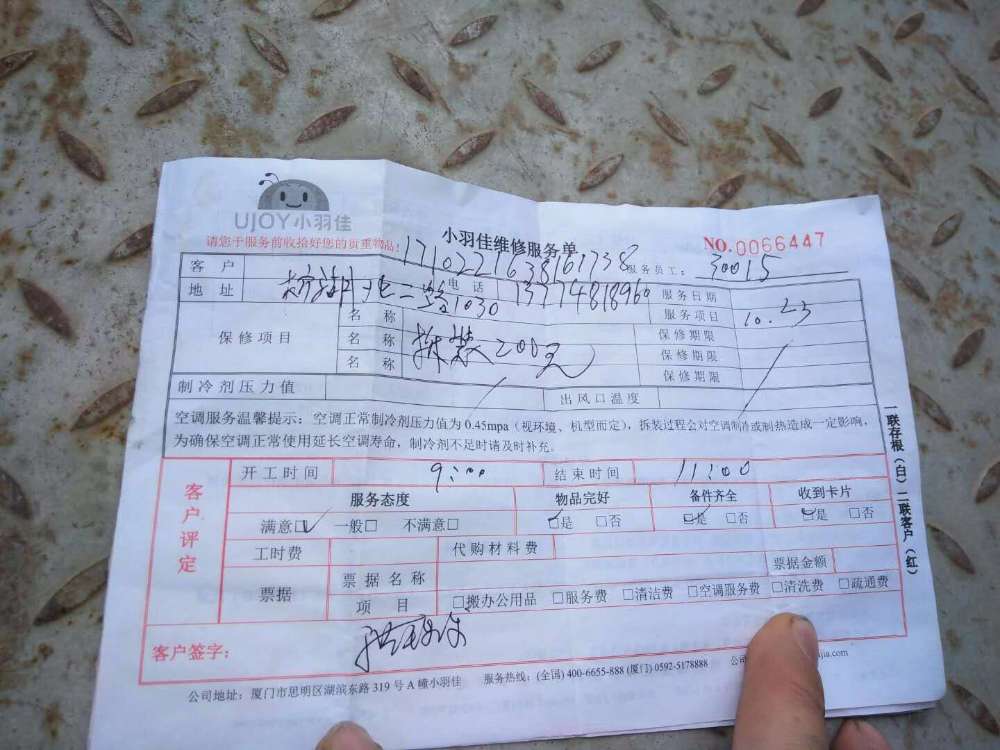 UJOY小羽佳
请您于服务前收拾好您的贵重物品!
小羽佳维修服务单
NO.0066447
1710221638161738
客户
服务员工: 30015
地址
二路1030
电话
13774818960
服务日期
10.23
服务项目
保修项目
名称
保修期限
名称 拆装200元
保修期限
名称
保修期限
制冷剂压力值
出风口温度
空调服务温馨提示: 空调正常制冷剂压力值为0.45mpa(视环境、机型而定), 拆装过程会对空调制冷或制热造成一定影响,
为确保空调正常使用延长空调寿命, 制冷剂不足时请及时补充。
客户评定
开工时间 9:00 结束时间 11:00
服务态度 物品完好 备件齐全 收到卡片
满意☑ 一般□ 不满意□ ☑是 □否 ☑是 □否 ☑是 □否
工时费 代购材料费
票据 票据名称 票据金额
项目 □搬办公用品 □服务费 □清洁费 □空调服务费 □清洗费 □疏通费
客户签字:
公司地址: 厦门市思明区湖滨东路319号A幢小羽佳 服务热线: (全国) 400-6655-888 (厦门) 0592-5178888 公司 jia.com
一联存根(白) 二联客户(红)